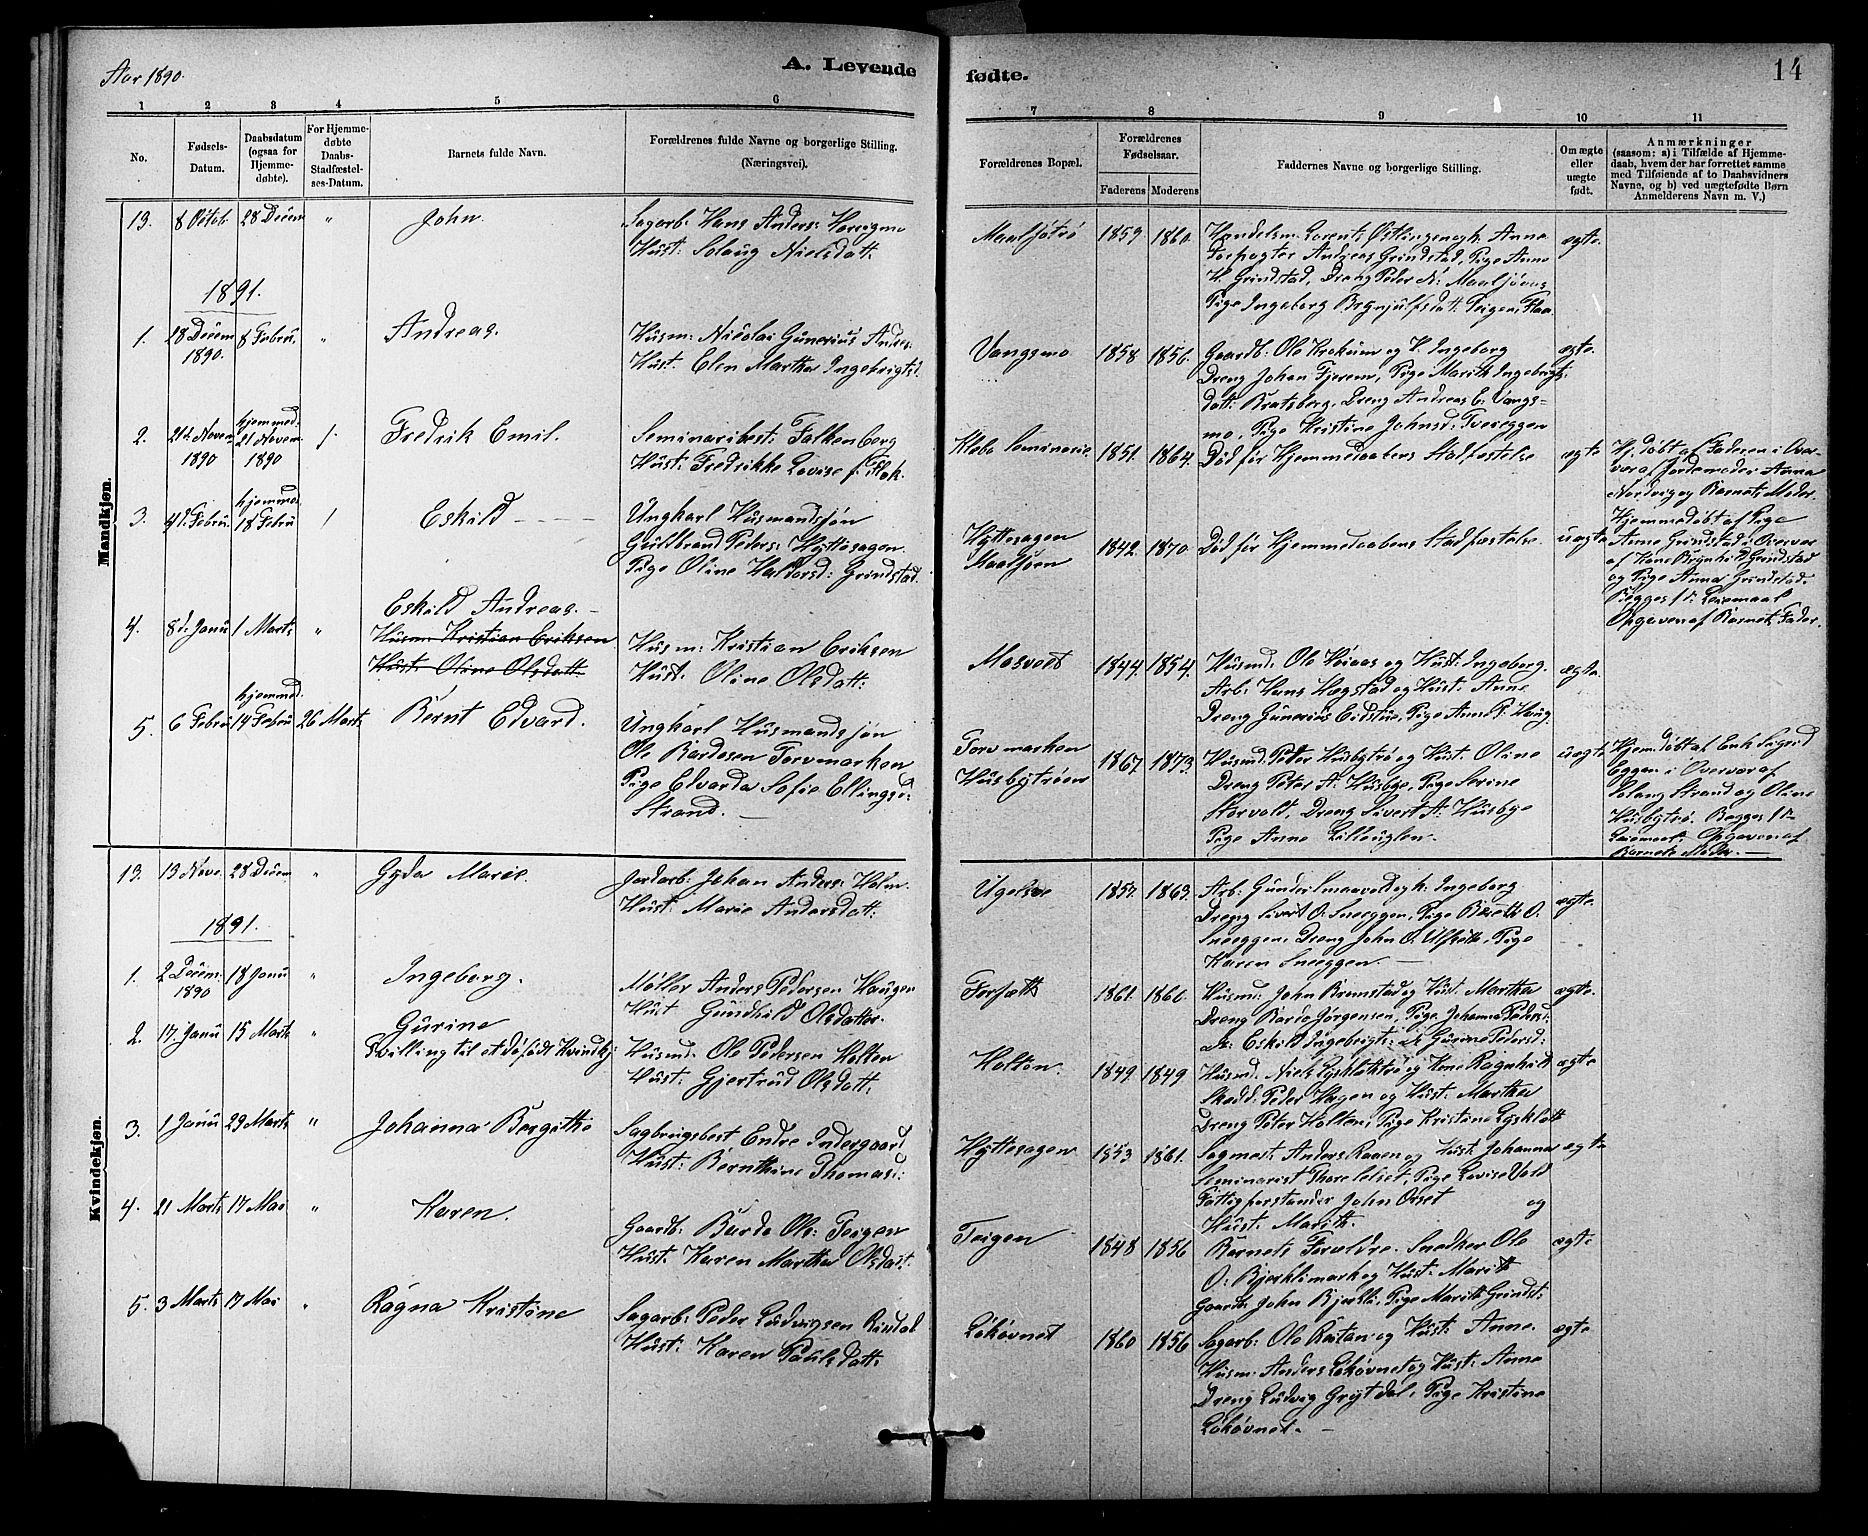 Aar 1890.
A. Levende
fødte.
14
1 2 3 4 5 6 7 8 9 10 11
No.
Fødsels-
Datum.
Daabsdatum
(ogsaa for
Hjemme-
døbte).
For Hjemme-
døbte
Daabs-
Stadfæstel-
ses-Datum.
Barnets fulde Navn.
Forældrenes fulde Navne og borgerlige Stilling.
(Næringsvei).
Forældrenes Bopæl.
Forældrenes
Fødselsaar.
Faderens Moderens
Faddernes Navne og borgerlige Stilling.
Om ægte
eller
uægte
født.
Anmærkninger
(saasom: a) i Tilfælde af Hjemme-
daab, hvem der har forrettet samme
med Tilføiende af to Daabsvidners
Navne, og b) ved uægtefødte Børn
Anmelderens Navn m. V.)
Mandkjøn.
13. 8 Octob 28 Decem " John.
Sagarb: Hans Anders:
Hust: Solaug Nielsdatt:
1859. 1860.
Handelsm. Lorents Østlingen og h. Anne
Forpagter Andreas Grindstad, Pige Anne
H Grindstad, Dreng Peder
Pige Ingeborg Brynjulfsdatt: Teigen, Flaa
ægte
1891.
1. 28 Decem 8 Febru. " Andreas.
1890.
Husm: Nicolai Gunerius Anders:
Hust. Elen Martha Ingebrigtsd.
Vangsmo 1858 1856.
Gaardb: Ole Krokum og H. Ingeborg
Dreng Johan Fjerem, Pige Marith Ingebrigts:
datt: Bratsberg, Dreng Andreas E. Vangs=
mo, Pige Kristine Johnsd: Tvereggen
ægte.
2. 21d. Novem hjemmed: 21 Novem /. Fredrik Emil.
1890 1890
Seminaribest: Falkenberg
Hust: Fredrikke Lovise f. Flok.
Klæbo Seminarie 1851. 1864.
Død før Hjemmedaabens Stadfæstelse
ægte
Hj. døbt af Faderen i Over-
vær af Jordemoder Anna
Nordvig og Barnets Moder.
3. 4d. Febru. hjemmed 18 Febru / Eskild - - - -
Ungkarl Husmandssøn
Guldbrand Peders: Hyttesagen.
Pige Oline Haldorsd: Grindstad.
Hyttesagen
Maalsjøen
1842. 1870.
Død før Hjemmedaabens Stadfæstelse.
uægte
Hjemmedøbt af Pige
Anne Grindstad i Overvær
og Pige Anna Grindstad.
Begges 1ste Leiemaal
Opgaven af Barnets Fader.
4. 8d. Janu 1 Marts " Eskild Andreas. -
Husm: Kristian Eriksen
Hust: Oline Olsdatt.
Husm: Kristian Eriksen
Hust. Oline Olsdatt:
Mosveet 1844. 1854.
Husmd: Ole Hoiaas og Hust: Ingeborg.
Arb: Hans Hegstad og Hust: Anne
Dreng Gunerius Eidstue, Pige Anne P. Haug.
ægte.
5. 6 Febru hjemmed. 14 Febru 26 Marts. Bernt Edvard.
Ungkarl Husmandssøn
Ole Bardosen Torvmarken
Pige Edvarda Sofie Ellingsd:
Strand. -
Torvmarken
Husbytrøen
1867. 1873.
Husmd. Peder Husbytrø og Hust. Oline
Dreng Peter A: Husbye, Pige Serine
Storvold, Dreng Sivert A: Husbye
Pige Anne Lilleuglen. -
uægte
Hjemdøbt af Enk Sigrid
Eggen i Overvær af
Solaug Strand og Oline
Husbytrø. Begges 1ste
Leiemaal, Opgaven af
Barnets Moder. -
Kvindekjøn.
13. 13 Nove. 28 Decem " Gyda Marie.
Jordarb: Johan Anders: Holm.
Hust: Marie Andersdatt:
1857. 1863.
Arb: Gunder Smaavold og h: Ingeborg
Dreng Sivert O. Sneeggen, Pige Bereth O.
Sneeggen, Dreng John O. Ulseth, Pige
Karen Sneeggen -
ægte.
1891.
1. 2 Decem. 18 Janu " Ingeborg.
1890
Møller Anders Pedersen Haugen
Hust Gunhild Olsdatter.
Forsæth 1861. 1860.
Husmd: John Brumstad og Hust. Martha
Dreng Bardo Jørgensen, Pige Johanna Pedersd:
Dr: Eskild Ingebrigts: Pi Gurine Pedersd:
ægte.
2. 17. Janu 15 Marts " Gurine
Tvilling til et døfødt Kvindkj
Husmd: Ole Pedersen Holten
Hust: Gjertrud Olsdatt:
Holten. 1849. 1849
Husmd. Niels Lysklettrø og Kone Ragnhild
Skodd: Peder Hagen og Hust: Martha
Dreng Peter Holten, Pige Kristine Lysklett
ægte
3. 1 Janu 29 Marts " Johanna Bergitte
Sagbrugsbest Endre Indergaard
Hust: Bernthine Thomasd:
Hyttesagen 1853 1861.
Sagmest. Anders Raaen og Hust Johanna
Seminarist Thore Lelset, Pige Lovise Vold
Fattigforstander John Orset og
Hust: Marith.
ægte
4. 21 Marts 17 Mai " Karen.
Gaardb: Bardo Ols: Teigen
Hust: Karen Martha Olsdatt.
Teigen 1848 1856
Barnets Forældre. Snedker Ole
O. Bjerklimark og Hust: Marith
Gaardb. John Bjerkli, Pige Marith Grindst:
ægte
5. 3 Marts 17 Mai " Ragna Kristine
Sagarb: Peder Ludvigsen Rindal
Hust: Karen Paulsdatt.
Løkøvnet 1860 1856
Sagarb: Ole Rostan og Hust: Anne.
Husm: Anders Løkøvnet og Hust: Anne
Dreng Ludvig Grytdal, Pige Kristine
Løkøvnet. -
ægte